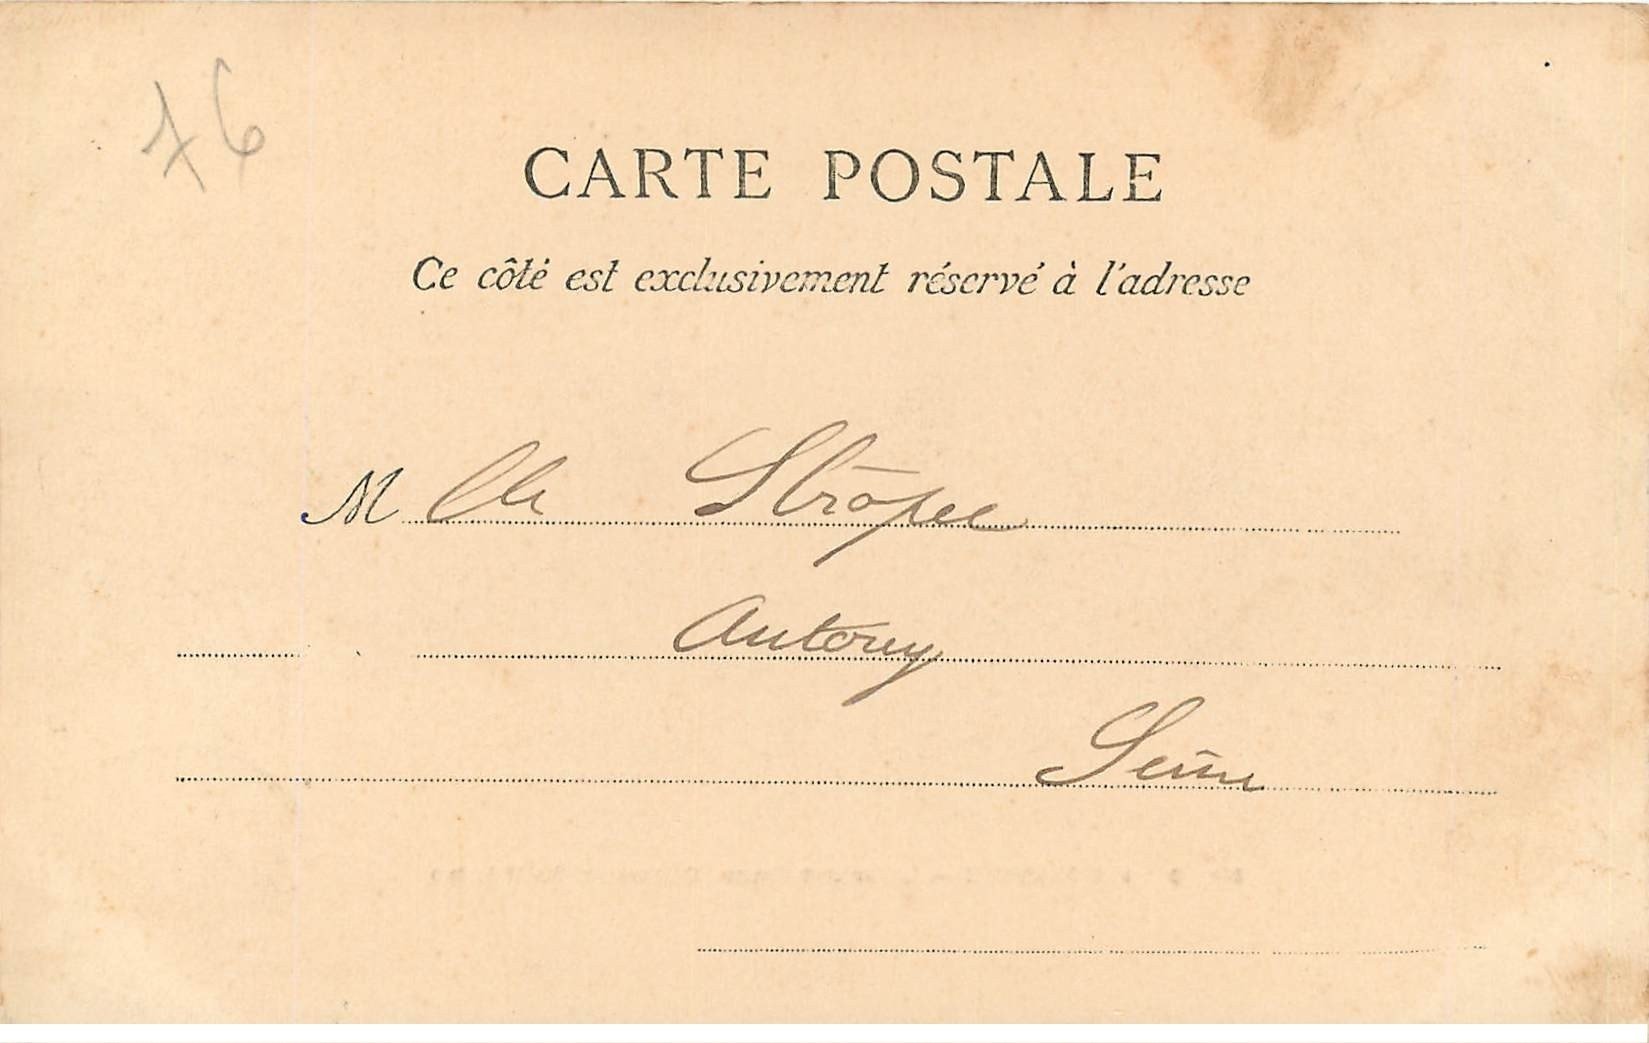 76
CARTE POSTALE
Ce côté est exclusivement réservé à l'adresse
Mlle Stròpee
Antony
Seine